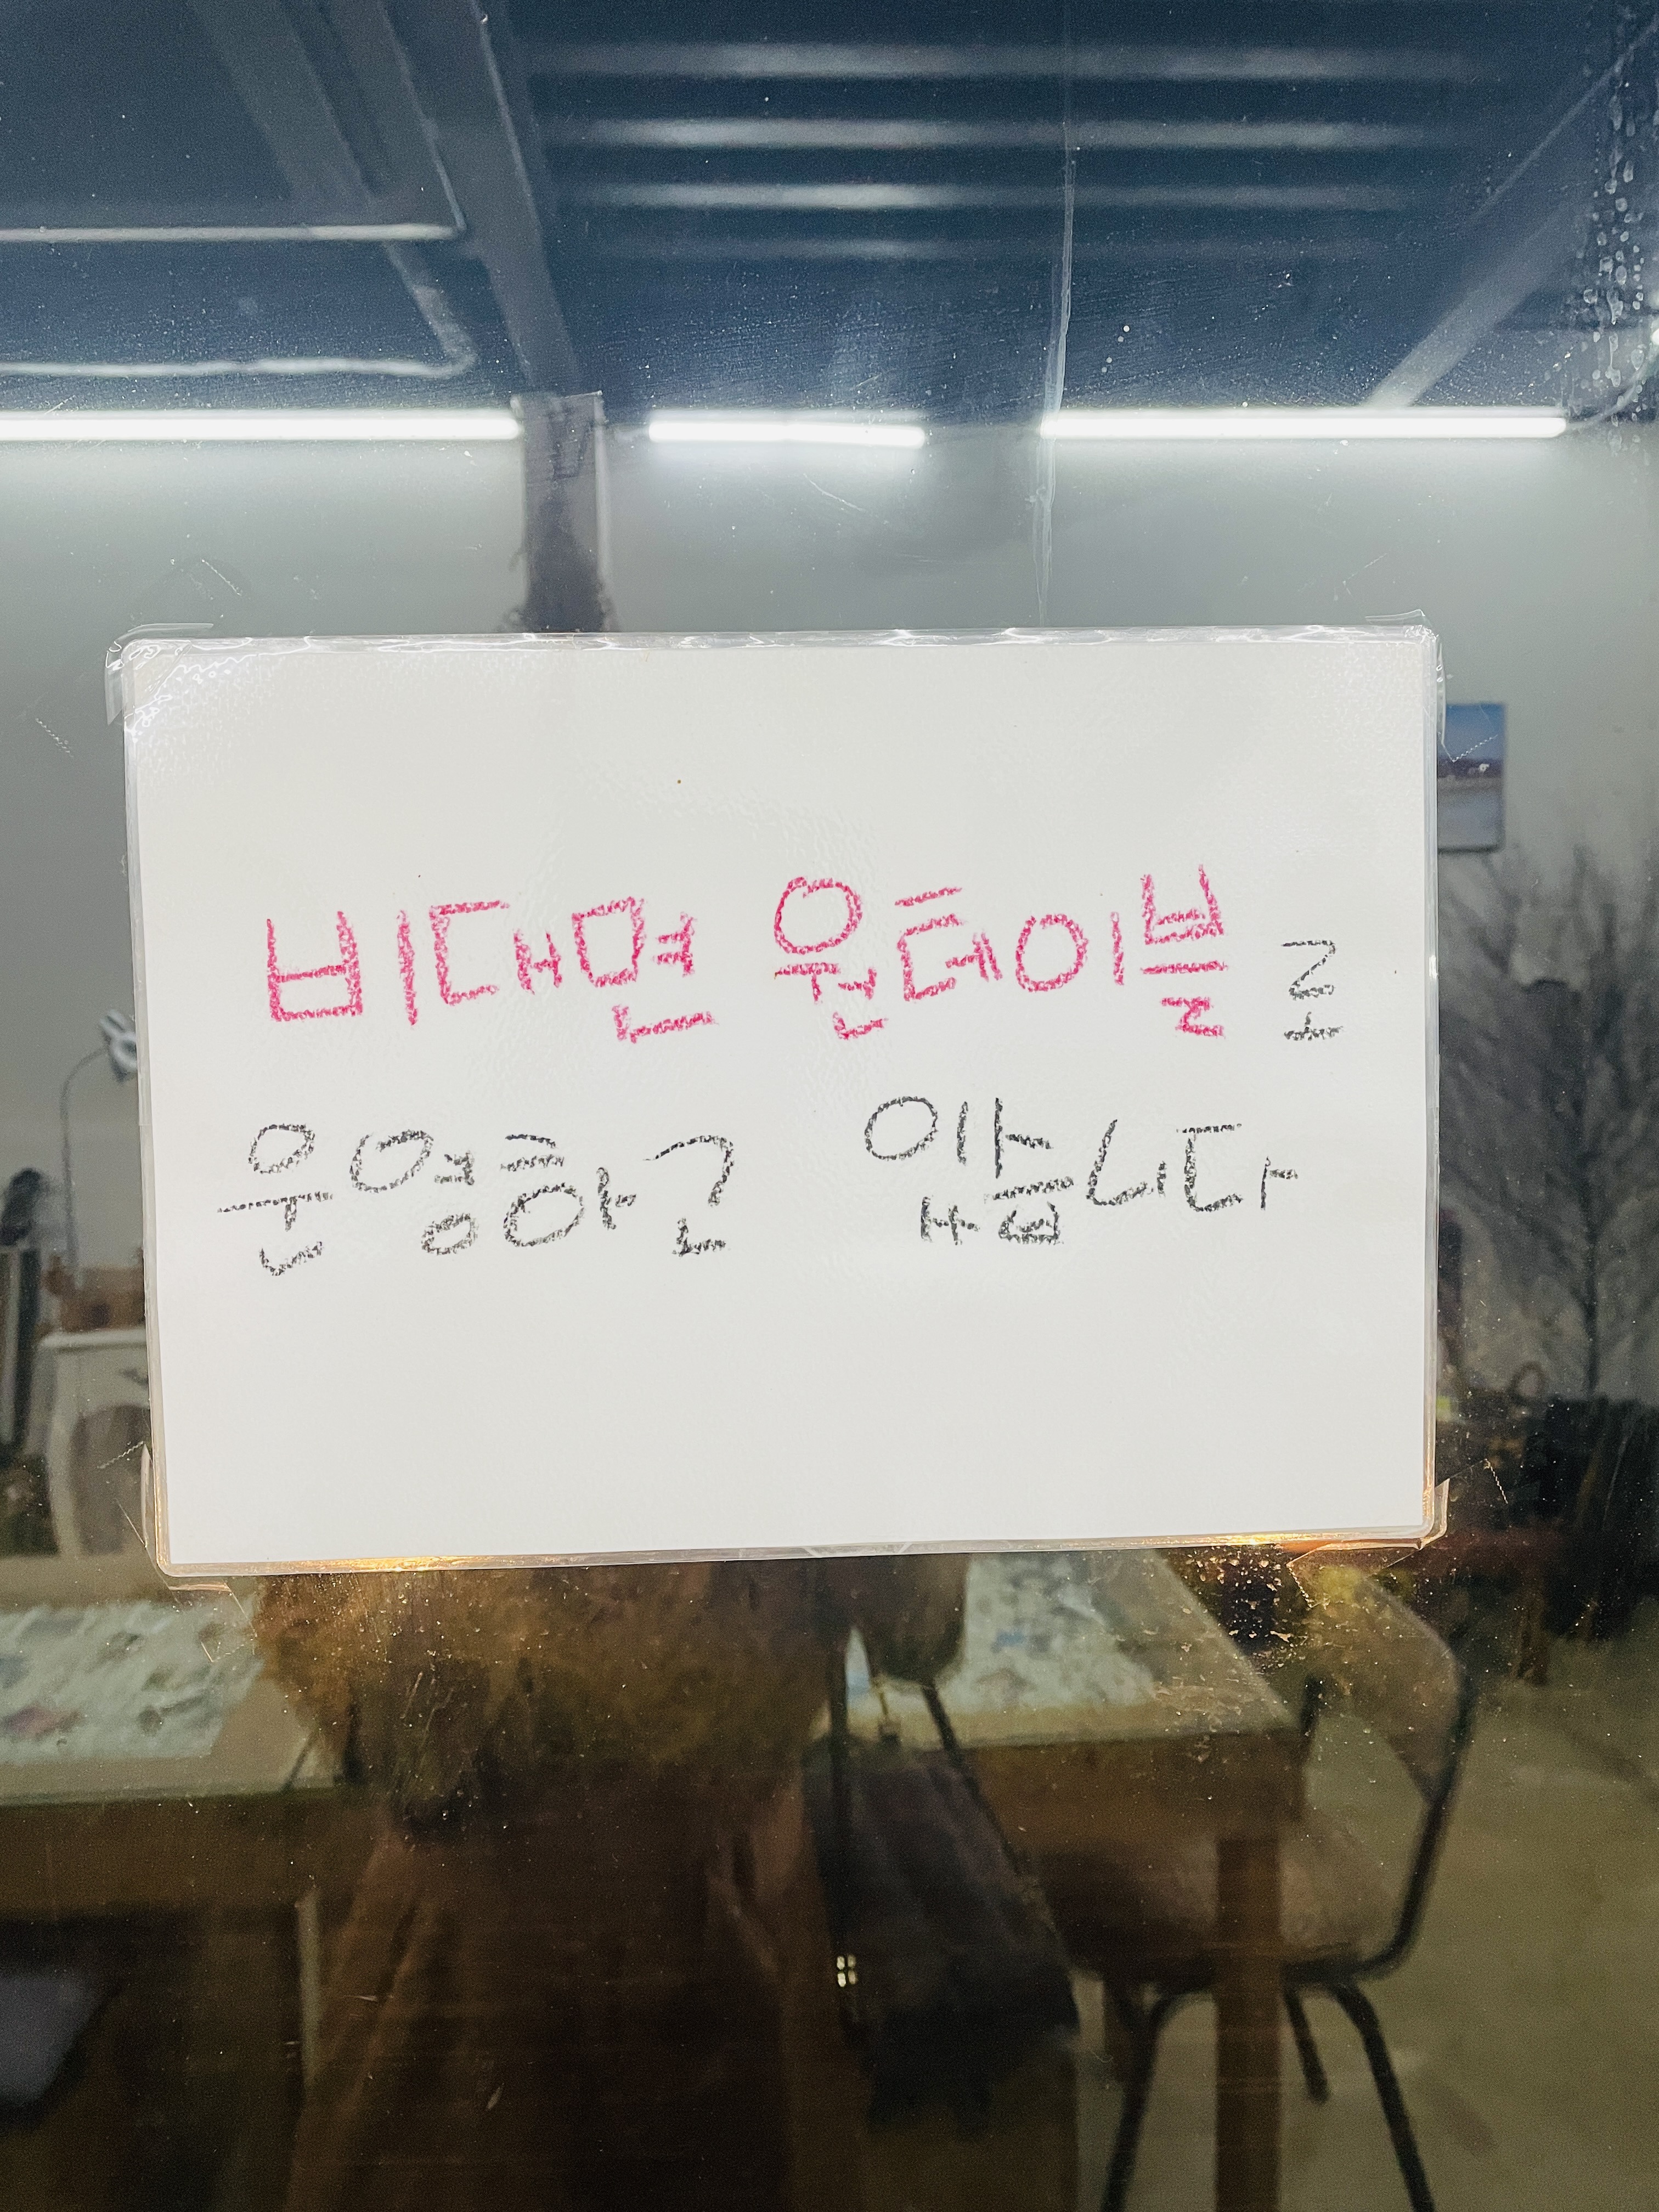 비대면 원테이블로
운영하고 있습니다